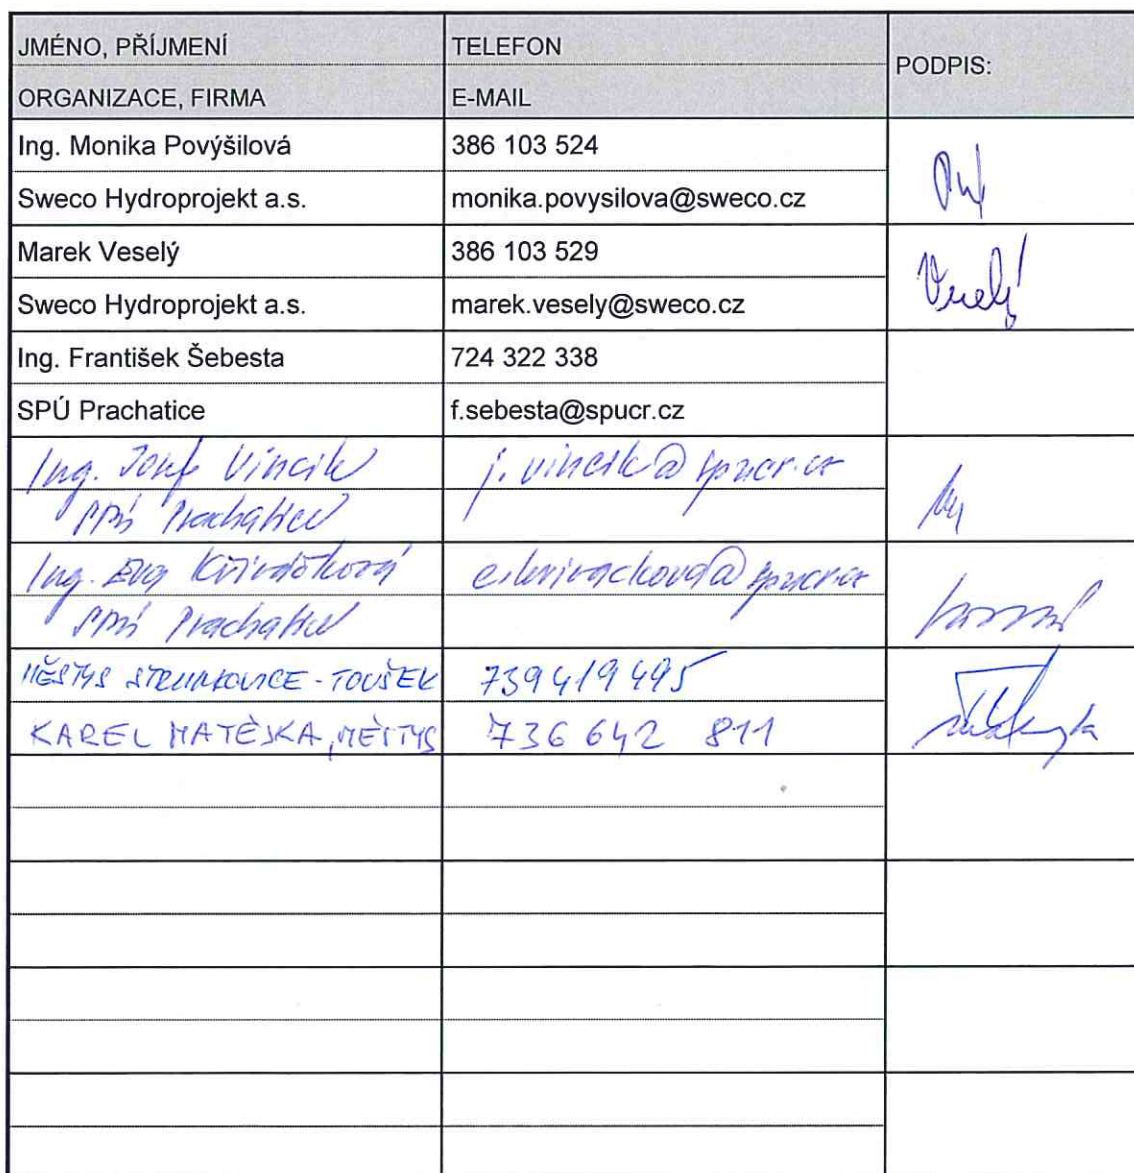 JMÉNO, PŘÍJMENÍ TELEFON
PODPIS:
ORGANIZACE, FIRMA E-MAIL
Ing. Monika Povýšilová 386 103 524
Sweco Hydroprojekt a.s. monika.povysilova@sweco.cz
Marek Veselý 386 103 529
Veselý
Sweco Hydroprojekt a.s. marek.vesely@sweco.cz
Ing. František Šebesta 724 322 338
SPÚ Prachatice f.sebesta@spucr.cz
Ing. Josef Vincik j.vincik@spucr.cz
SPÚ Prachatice
Ing. Eva
SPÚ Prachatice
MĚSTYS STRUNKOVICE - TOUŠEK 739419495
KAREL MATĚJKA, MĚSTYS 736 642 811